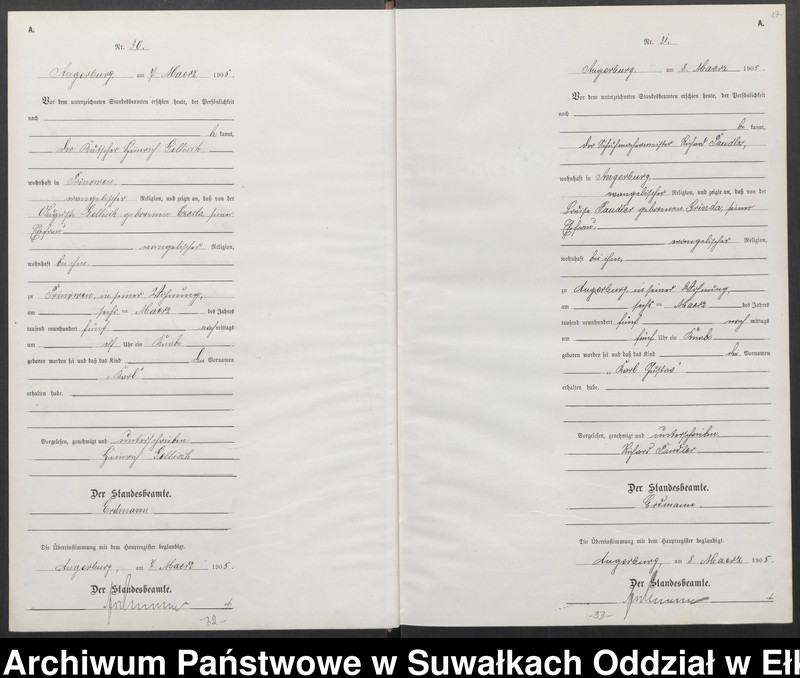 A.
Nr. 20.
Angerburg am 7 Maerz 1905.
Vor dem unterzeichneten Standesbeamten erschien heute, der Persönlichkeit
nach
be kannt,
der Kutscher Heinrich Gollisch
wohnhaft in
evangelischer Religion, und zeigte an, daß von der
Auguste Gollisch geborenen seiner
Ehefrau
evangelischer Religion,
wohnhaft bei ihm
zu in seiner Wohnung,
am sechs ten Maerz des Jahres
tausend neunhundert fünf nach mittags
um elf Uhr ein Knabe
geboren worden sei und daß das Kind den Vornamen
„Karl“
erhalten habe.
Vorgelesen, genehmigt und unterschrieben
Heinrich Gollisch
Der Standesbeamte.
Erdmann
Die Übereinstimmung mit dem Hauptregister beglaubigt.
Angerburg, am 7 Maerz 1905.
Der Standesbeamte.
-32-
17
A.
Nr. 21.
Angerburg am 8. Maerz 1905.
Vor dem unterzeichneten Standesbeamten erschien heute, der Persönlichkeit
nach
be kannt,
der Schuhmachermeister Richard Tandler,
wohnhaft in Angerburg
evangelischer Religion, und zeigte an, daß von der
Louise Tandler geborenen Grinda, seiner
Ehefrau
evangelischer Religion,
wohnhaft bei ihm,
zu Angerburg in seiner Wohnung
am sechs ten Maerz des Jahres
tausend neunhundert fünf nach mittags
um fünf Uhr ein Knabe
geboren worden sei und daß das Kind die Vornamen
„Karl Gustav“
erhalten habe.
Vorgelesen, genehmigt und unterschrieben
Richard Tandler
Der Standesbeamte.
Erdmann.
Die Übereinstimmung mit dem Hauptregister beglaubigt.
Angerburg, am 8 Maerz 1905.
Der Standesbeamte.
-33-
Archiwum Państwowe w Suwałkach Oddział w Ełk